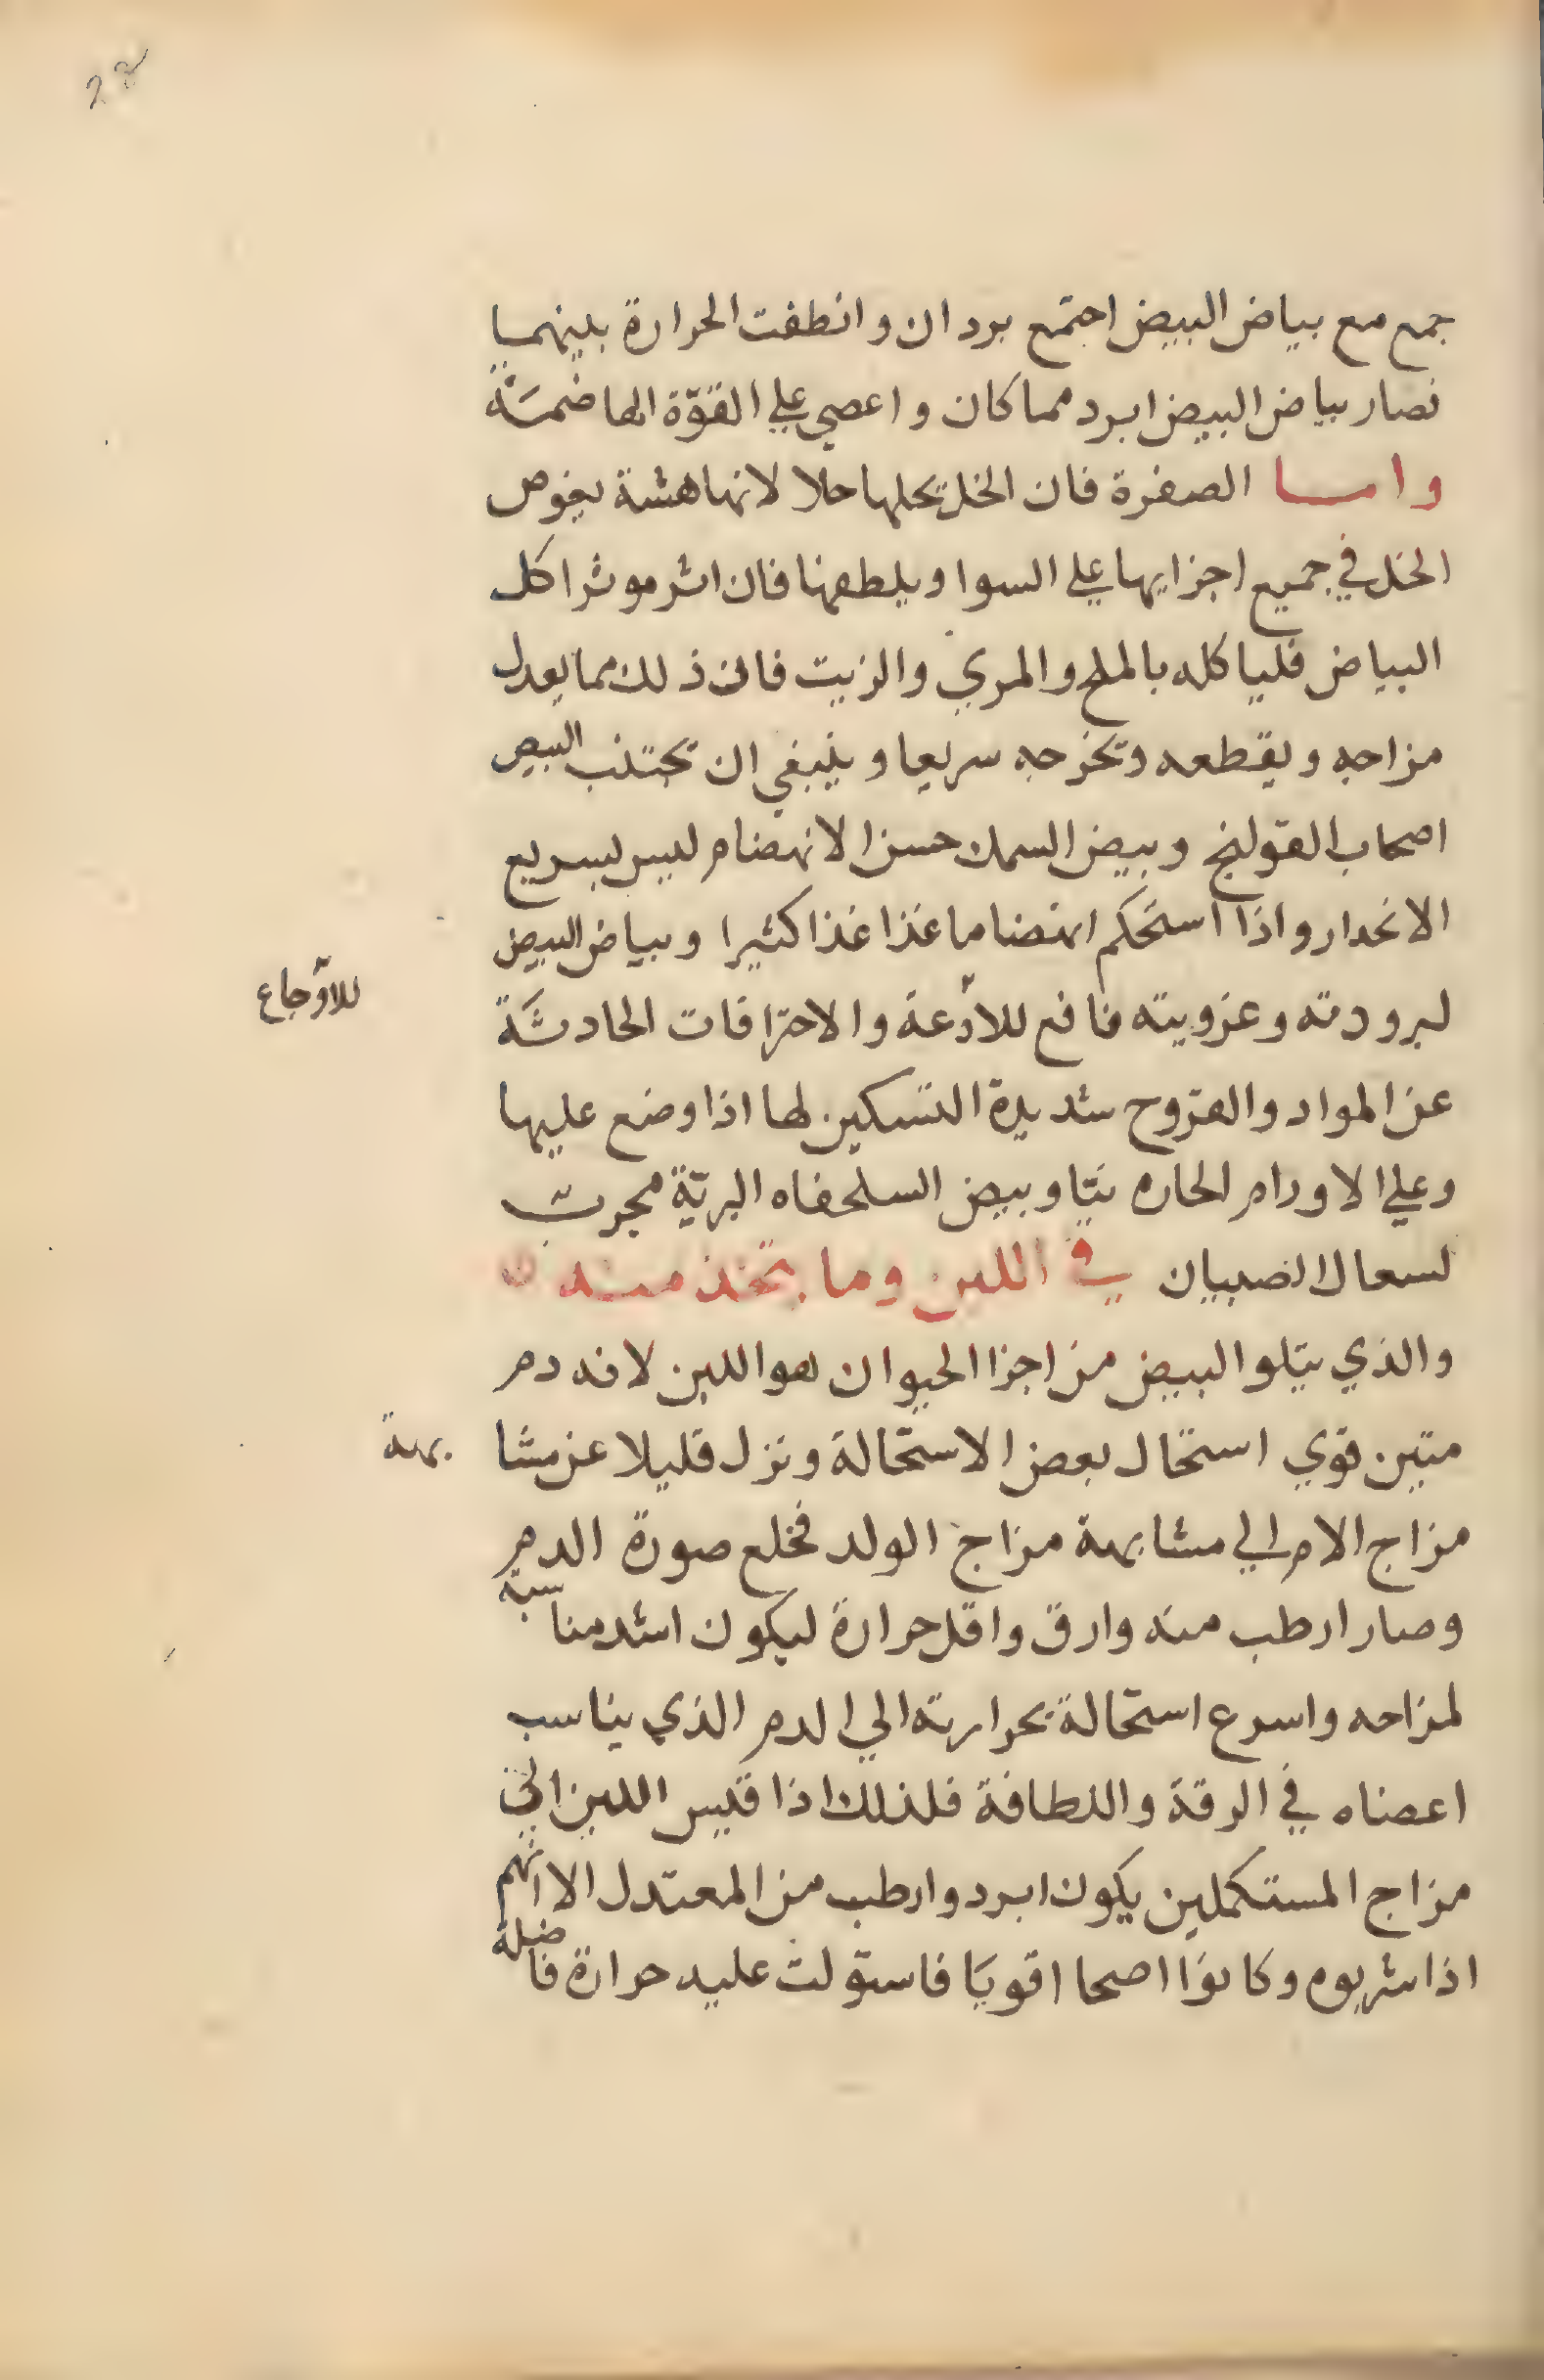 28
جمع مع بياض البيض اجتمع بردان وانطفت الحرارة بينهما
فصار بياض البيض ابرد مما كان واعصي علي القوّة الهاضمة
واما الصفرة فان الخل يحلها حلا لانها هشة يغوص
الخل في جميع اجزايها علي السوا ويلطفها فان اثر موثر اكل
البياض فلياكله بالملح والمري والزيت فان ذلك مما يعدل
مزاجه ويقطعه وتخرجه سريعا وينبغي ان تجتنب البيض
اصحاب القولنج وبيض السمك حسن الانهضام ليس بسريع
الانحدار واذا استحكم انهضاما غذا غذا كثيرا وبياض البيض
لبرودته وغرويته نافع للأدعة والاحتراقات الحادثة
للأوجاع
عن المواد والقروح شديدة التسكين لها اذا وضع عليها
وعلي الاورام الحاره نيّا وبيض السلحفاه البريّة مجرب
لسعال الصبيان في اللبن وما يتخذ منه
والذي يتلو البيض من اجزا الحيوان هو اللبن لانه دم
متين قوي استحال بعض الاستحالة ونزل قليلا عن مشا بهة
مزاج الام الي مشابهة مزاج الولد فخلع صورة الدم
وصار ارطب منه وارق واقل حرارة ليكون اشد مناسبة
لمزاحه واسرع استحالة بحرارته الي الدم الذي يناسب
اعضاه في الرقة واللطافة فلذلك اذا قيس اللبن الي
مزاج المستكملين يكون ابرد وارطب من المعتدل الا انهم
اذا شربوه وكانوا اصحا اقويا فاستولت عليه حرارة فاضلة